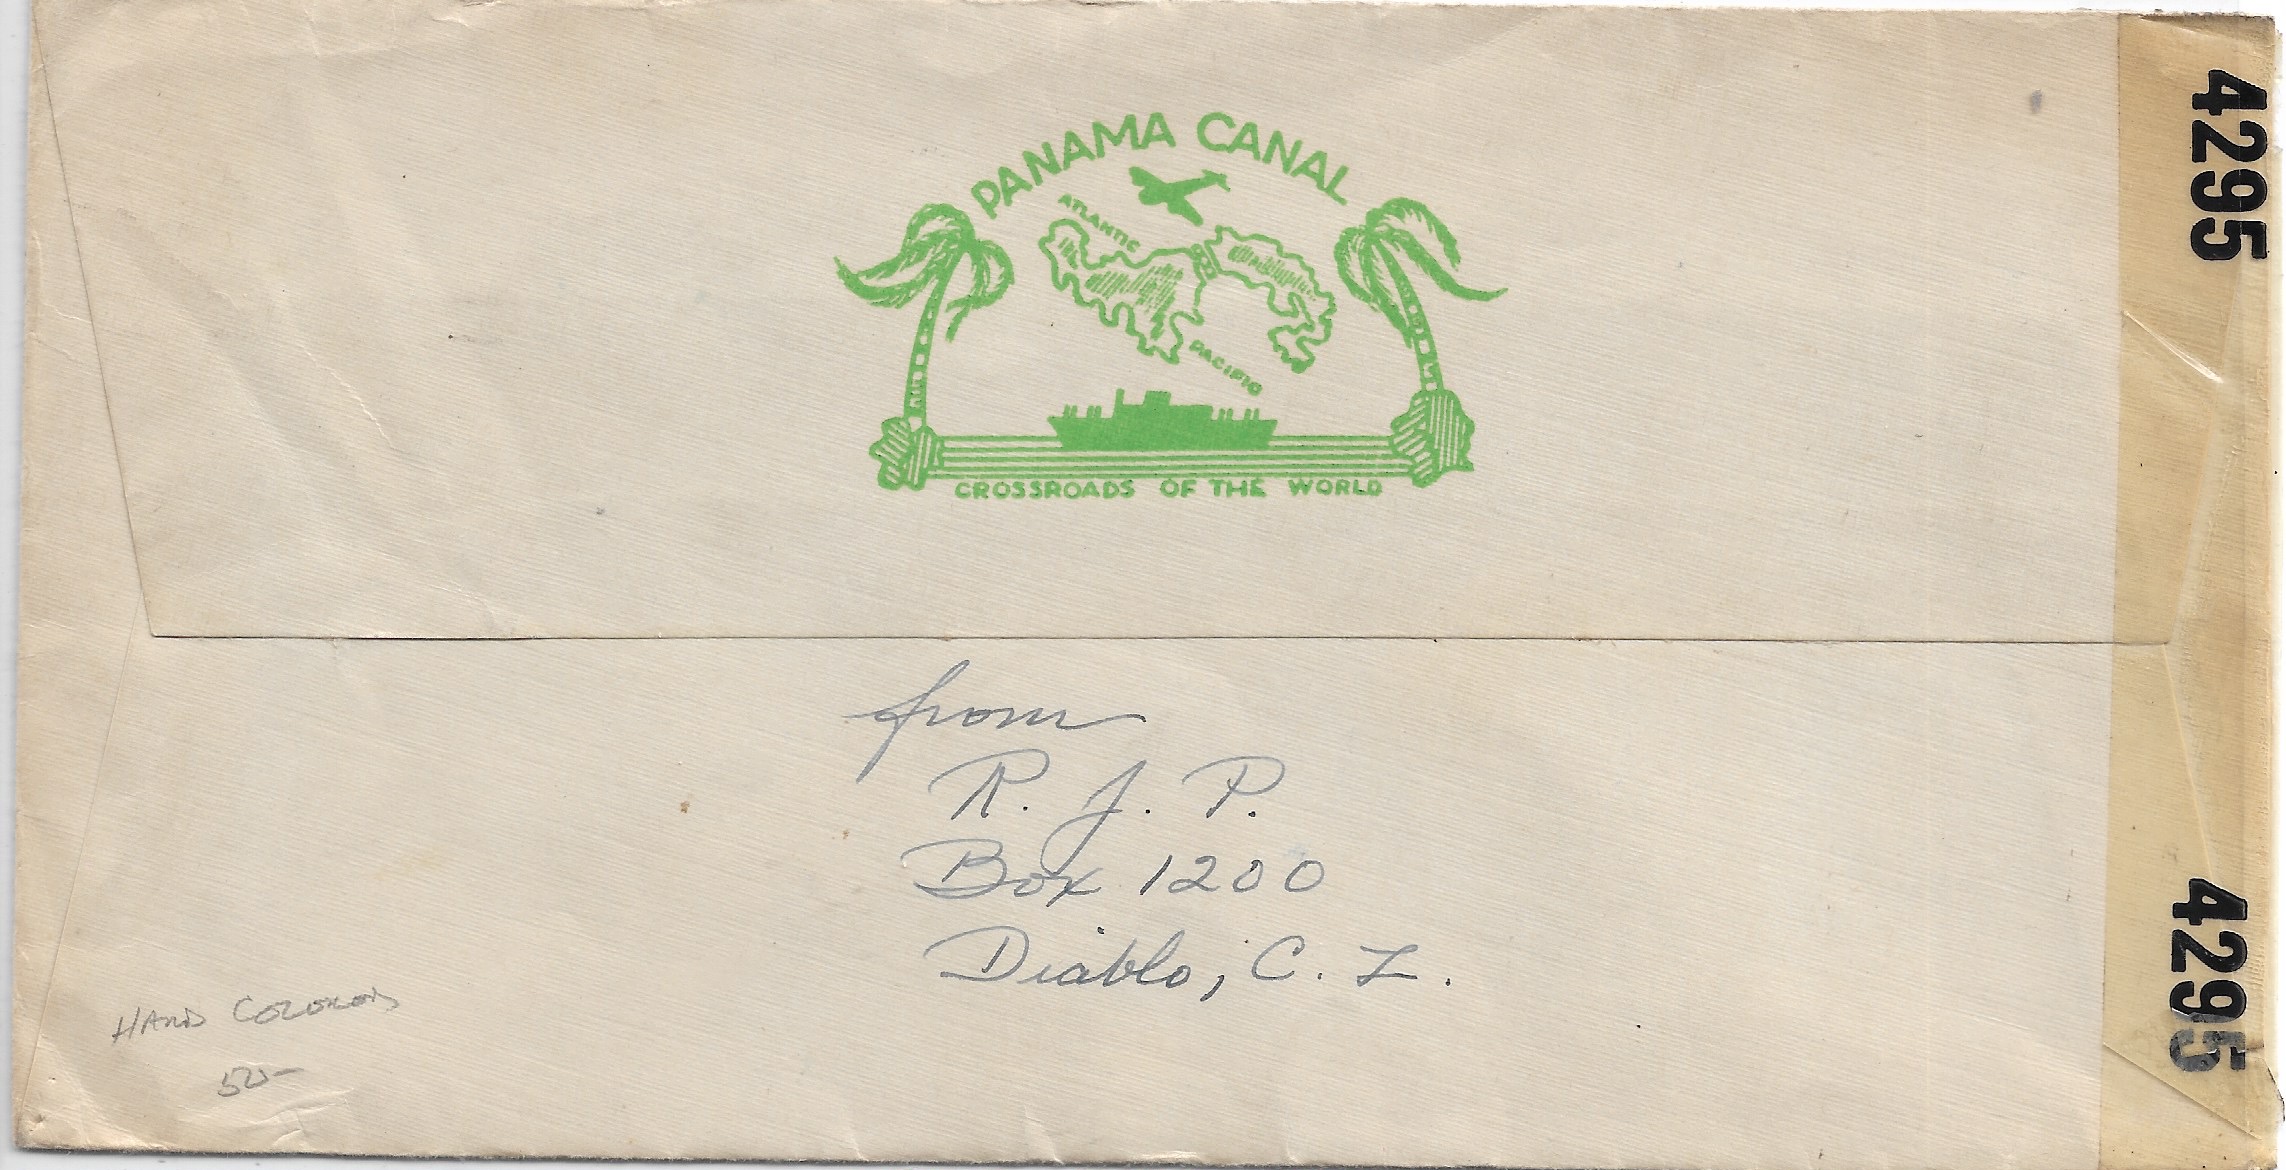 PANAMA CANAL
ATLANTIC
PACIFIC
CROSSROADS OF THE WORLD
from
R. J. P.
Box 1200
Diablo, C. Z.
HAND COLORED
50-
4295
4295